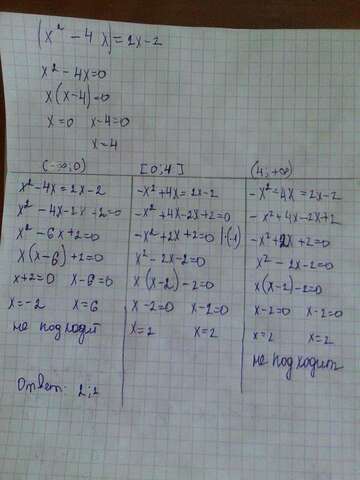 |x² - 4x| = 2x-2
x² - 4x=0
x(x-4)=0
x=0 x-4=0
x=4
(-∞;0)
x²-4x=2x-2
x² -4x-2x+2=0
x² -6x+2=0
x(x-6)+2=0
x+2=0 x-6=0
x=-2 x=6
не подходит
[0;4]
-x²+4x=2x-2
-x²+4x-2x+2=0
-x²+2x+2=0 |·(-1)
x² -2x-2=0
x(x-2)-2=0
x-2=0 x-2=0
x=2 x=2
(4;+∞)
-x²-4x=2x-2
-x²+4x-2x+2
-x²+2x+2=0
x² -2x-2=0
x(x-2)-2=0
x-2=0 x-2=0
x=2 x=2
не подходит
Ответ: 2;2